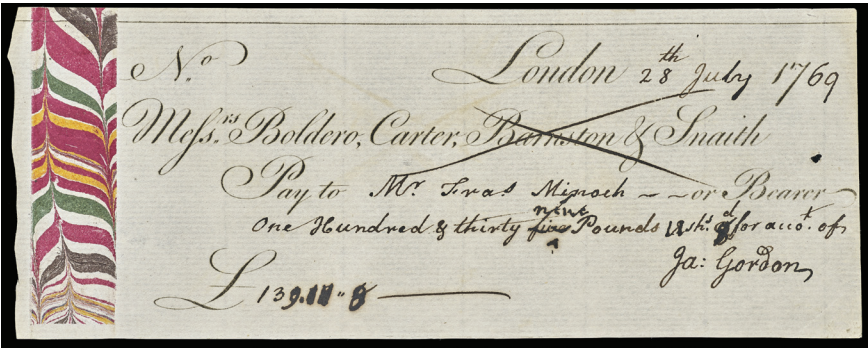 No. London 28th July 1769
Messrs. Boldero, Carter, Barnston & Snaith
Pay to Mr. Fras Minoch or Bearer
One Hundred & thirty five nine Pounds 11 sh.s 8d for acct. of
Ja: Gordon
£ 139.11"8